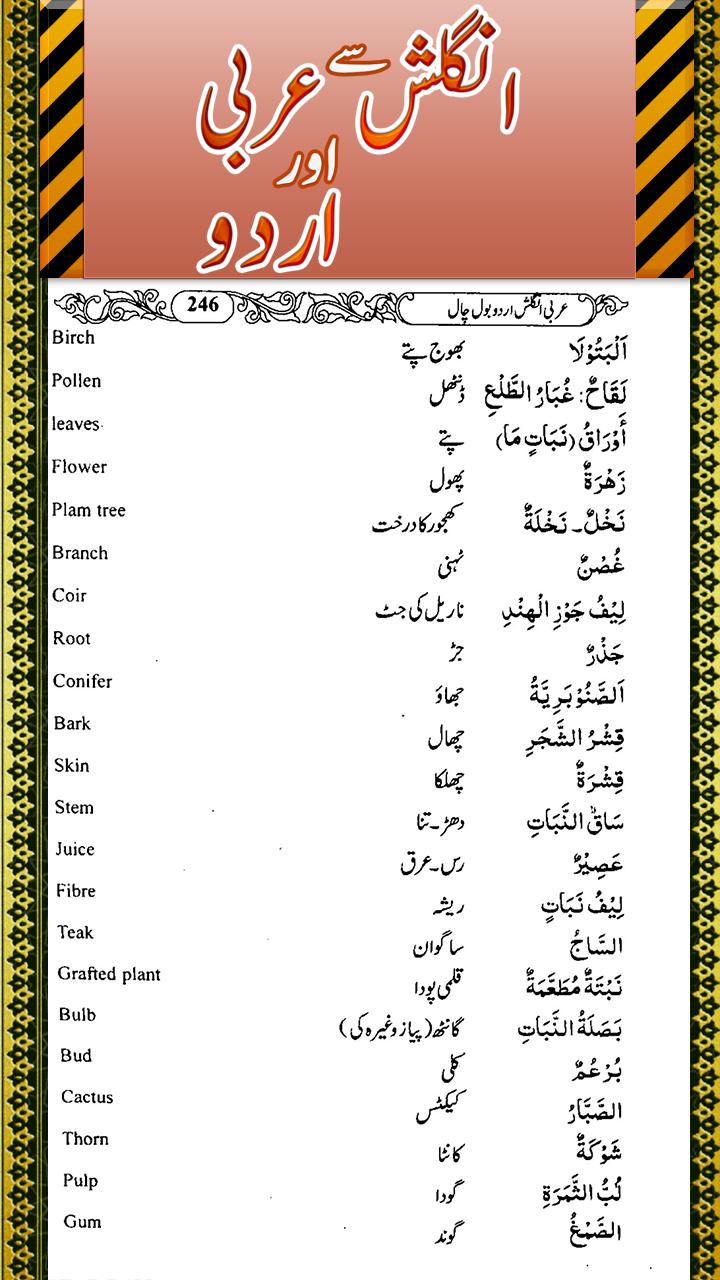 انگلش سے عربی
اور
اردو
246 عربی انگلش اردو بول چال
Birch بھوج پتے اَلْبَتُوْلَا
Pollen ڈنٹھل لَقَاحٌ: غُبَارُ الطَّلْعِ
leaves پتے أَوْرَاقُ (نَبَاتٍ مَا)
Flower پھول زَهْرَةٌ
Plam tree کھجور کا درخت نَخْلٌ۔ نَخْلَةٌ
Branch ٹہنی غُصْنٌ
Coir ناریل کی جٹ لِيْفُ جَوْزِ الْهِنْدِ
Root جڑ جَذْرٌ
Conifer جھاؤ اَلصَّنُوْبَرِيَّةُ
Bark چھال قِشْرُ الشَّجَرِ
Skin چھلکا قِشْرَةٌ
Stem دھڑ۔تنا سَاقُ النَّبَاتِ
Juice رس۔عرق عَصِيْرٌ
Fibre ریشہ لِيْفُ نَبَاتٍ
Teak ساگوان السَّاجُ
Grafted plant قلمی پودا نَبْتَةٌ مُطَعَّمَةٌ
Bulb گانٹھ (پیاز وغیرہ کی) بَصَلَةُ النَّبَاتِ
Bud کلی بُرْعُمٌ
Cactus کیکٹس الصَّبَّارُ
Thorn کانٹا شَوْكَةٌ
Pulp گودا لُبُّ الثَّمَرَةِ
Gum گوند الصَّمْغُ